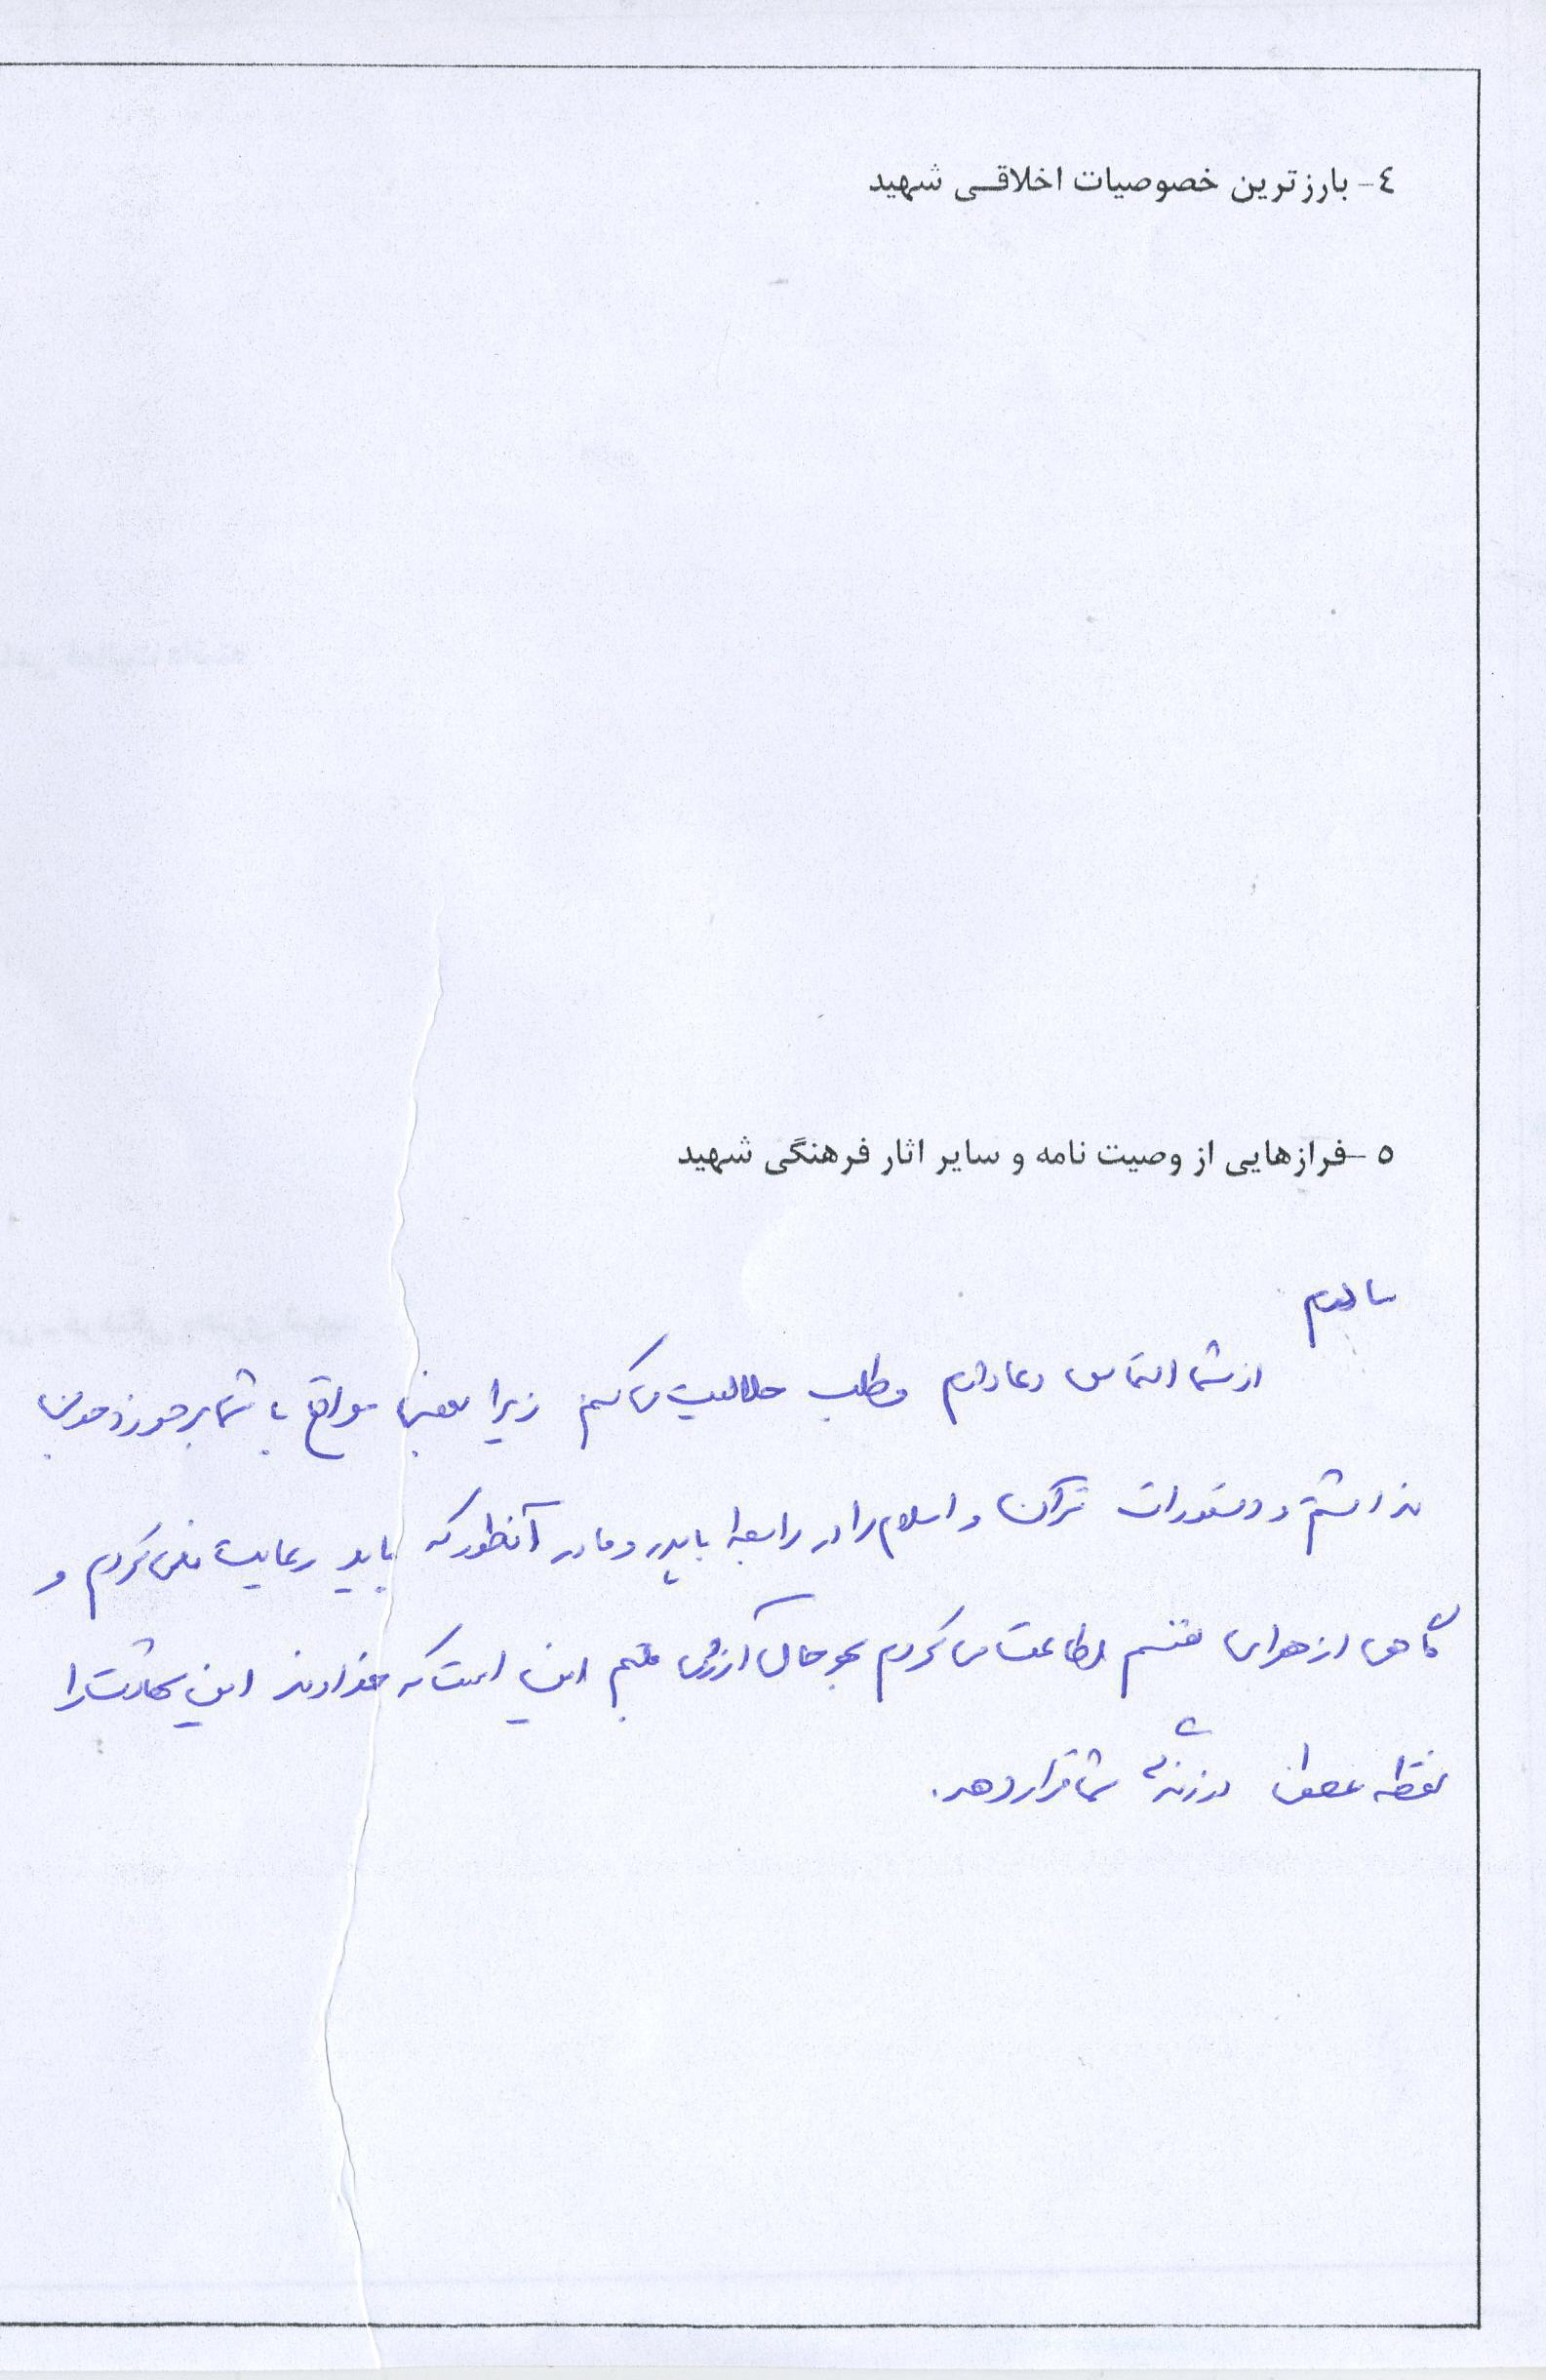 ٤- بارزترین خصوصیات اخلاقی شهید
٥-فرازهایی از وصیت نامه و سایر اثار فرهنگی شهید
از شما التماس دعا دارم و طلب حلالیت می کنم زیرا بعضی مواقع با شما برخورد خوبی
نداشتم و دستورات قرآن و اسلام را در رابطه با پدر و مادر آنطور که باید رعایت نمی کردم و
گاهی از هوای نفسم اطاعت می کردم بهر حال آرزوی قلبم این است که خداوند این شهادت را
نقطه عطفی در زندگی شما قرار دهد.